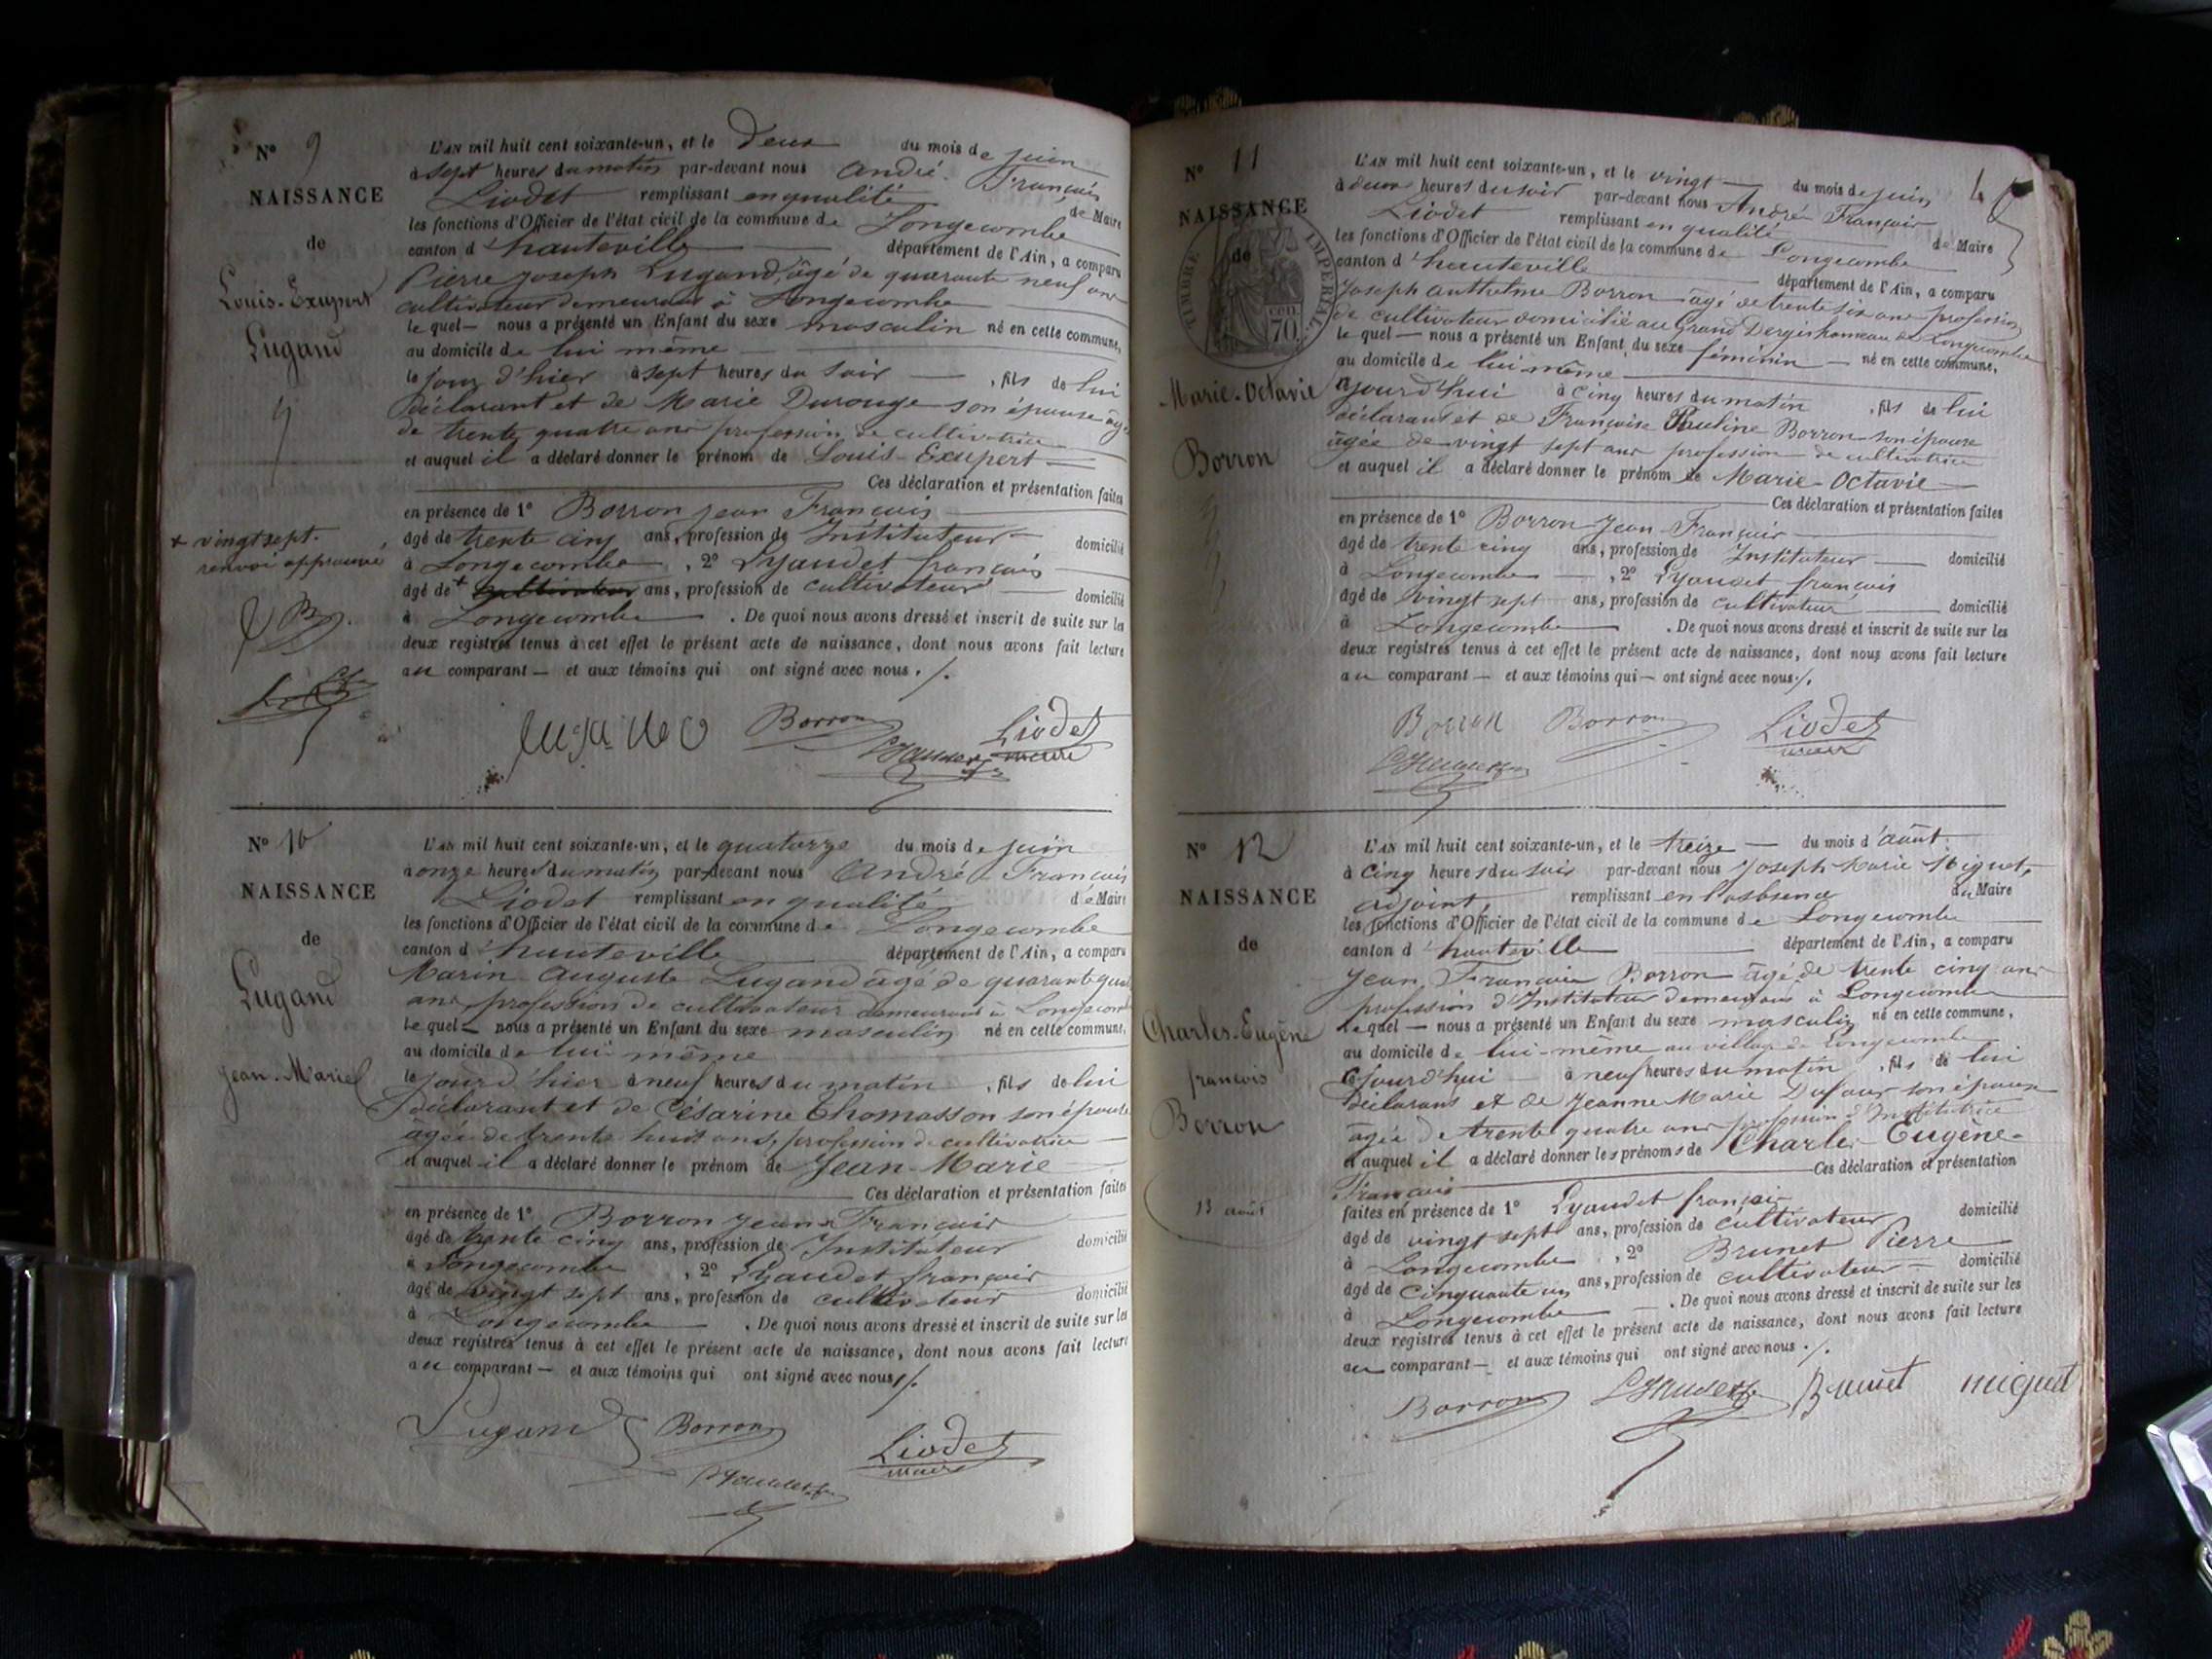 N° 9
NAISSANCE
de
Louis-Exupert
Lugand
L'AN mil huit cent soixante-un, et le deux du mois de juin
à sept heures du matin par-devant nous André François
Liodet remplissant en qualité de Maire
les fonctions d'Officier de l'état civil de la commune de Longecombe
canton d'hauteville département de l'Ain, a comparu
Pierre Joseph Lugand, âgé de quarante neuf ans
cultivateur demeurant à Longecombe
le quel — nous a présenté un Enfant du sexe masculin né en cette commune,
au domicile de lui même
le jour d'hier à sept heures du soir, fils de lui
déclarant et de Marie Durouge son épouse âgée
de trente quatre ans profession de cultivatrice
et auquel il a déclaré donner le prénom de Louis-Exupert
Ces déclaration et présentation faites
en présence de 1° Borron Jean François
âgé de trente cinq ans, profession de Instituteur domicilié
à Longecombe, 2° Lyaudet françois
âgé de + ans, profession de cultivateur domicilié
à Longecombe. De quoi nous avons dressé et inscrit de suite sur les
deux registres tenus à cet effet le présent acte de naissance, dont nous avons fait lecture
au comparant — et aux témoins qui ont signé avec nous ./.
+ vingt sept.
renvoi approuvé
Borron Liodet
Lyaudet maire
N° 10
NAISSANCE
de
Lugand
Jean-Marie
L'AN mil huit cent soixante-un, et le quatorze du mois de juin
à onze heures du matin par-devant nous André François
Liodet remplissant en qualité de Maire
les fonctions d'Officier de l'état civil de la commune de Longecombe
canton d'hauteville département de l'Ain, a comparu
Marin Auguste Lugand âgé de
ans, profession de cultivateur demeurant à Longecombe
le quel — nous a présenté un Enfant du sexe masculin né en cette commune,
au domicile de lui même
le jour d'hier à neuf heures du matin, fils de lui
déclarant et de Césarine Thomasson son épouse
âgée de trente huit ans, profession de cultivatrice
et auquel il a déclaré donner le prénom de Jean-Marie
Ces déclaration et présentation faites
en présence de 1° Borron Jean François
âgé de trente cinq ans, profession de Instituteur domicilié
à Longecombe, 2° Lyaudet françois
âgé de vingt sept ans, profession de cultivateur domicilié
à Longecombe. De quoi nous avons dressé et inscrit de suite sur les
deux registres tenus à cet effet le présent acte de naissance, dont nous avons fait lecture
au comparant — et aux témoins qui ont signé avec nous ./.
Lugand Borron Liodet
Lyaudet maire
N° 11
NAISSANCE
de
TIMBRE IMPERIAL
CEN. 70.
Marie-Octavie
Borron
L'AN mil huit cent soixante-un, et le vingt du mois de juin
à deux heures du soir par-devant nous André François
Liodet remplissant en qualité de Maire
les fonctions d'Officier de l'état civil de la commune de Longecombe
canton d'hauteville département de l'Ain, a comparu
Joseph Anthelme Borron âgé de trente six ans profession
de cultivateur domicilié au Grand Dergis hameau de Longecombe
le quel — nous a présenté un Enfant du sexe féminin né en cette commune,
au domicile de lui même
ajourd'hui à cinq heures du matin, fils de lui
déclarant et de Françoise Pauline Borron son épouse
âgée de vingt sept ans profession de cultivatrice
et auquel il a déclaré donner le prénom de Marie-Octavie
Ces déclaration et présentation faites
en présence de 1° Borron Jean François
âgé de trente cinq ans, profession de Instituteur domicilié
à Longecombe, 2° Lyaudet françois
âgé de vingt sept ans, profession de cultivateur domicilié
à Longecombe. De quoi nous avons dressé et inscrit de suite sur les
deux registres tenus à cet effet le présent acte de naissance, dont nous avons fait lecture
au comparant — et aux témoins qui — ont signé avec nous ./.
Borron Borron Liodet
Lyaudet maire
N° 12
NAISSANCE
de
Charles-Eugène
françois
Borron
13 août
L'AN mil huit cent soixante-un, et le treize du mois d'août
à cinq heures du soir par-devant nous Joseph Marie Miguet,
adjoint, remplissant en l'asbsence du Maire
les fonctions d'Officier de l'état civil de la commune de Longecombe
canton d'hauteville département de l'Ain, a comparu
Jean François Borron âgé de trente cinq ans
profession d'Instituteur demeurant à Longecombe
lequel — nous a présenté un Enfant du sexe masculin né en cette commune,
au domicile de lui-même au village de Longecombe
cejourd'hui à neuf heures du matin, fils de lui
déclarant et de Jeanne Marie Dufour son épouse
âgée de trente quatre ans profession d'Institutrice
et auquel il a déclaré donner les prénoms de Charles Eugène-
Ces déclaration et présentation
François
faites en présence de 1° Lyaudet françois
âgé de vingt sept ans, profession de cultivateur domicilié
à Longecombe, 2° Brunet Pierre
âgé de cinquante un ans, profession de cultivateur domicilié
à Longecombe. De quoi nous avons dressé et inscrit de suite sur les
deux registres tenus à cet effet le présent acte de naissance, dont nous avons fait lecture
au comparant — et aux témoins qui ont signé avec nous ./.
Borron Lyaudet Brunet miguet